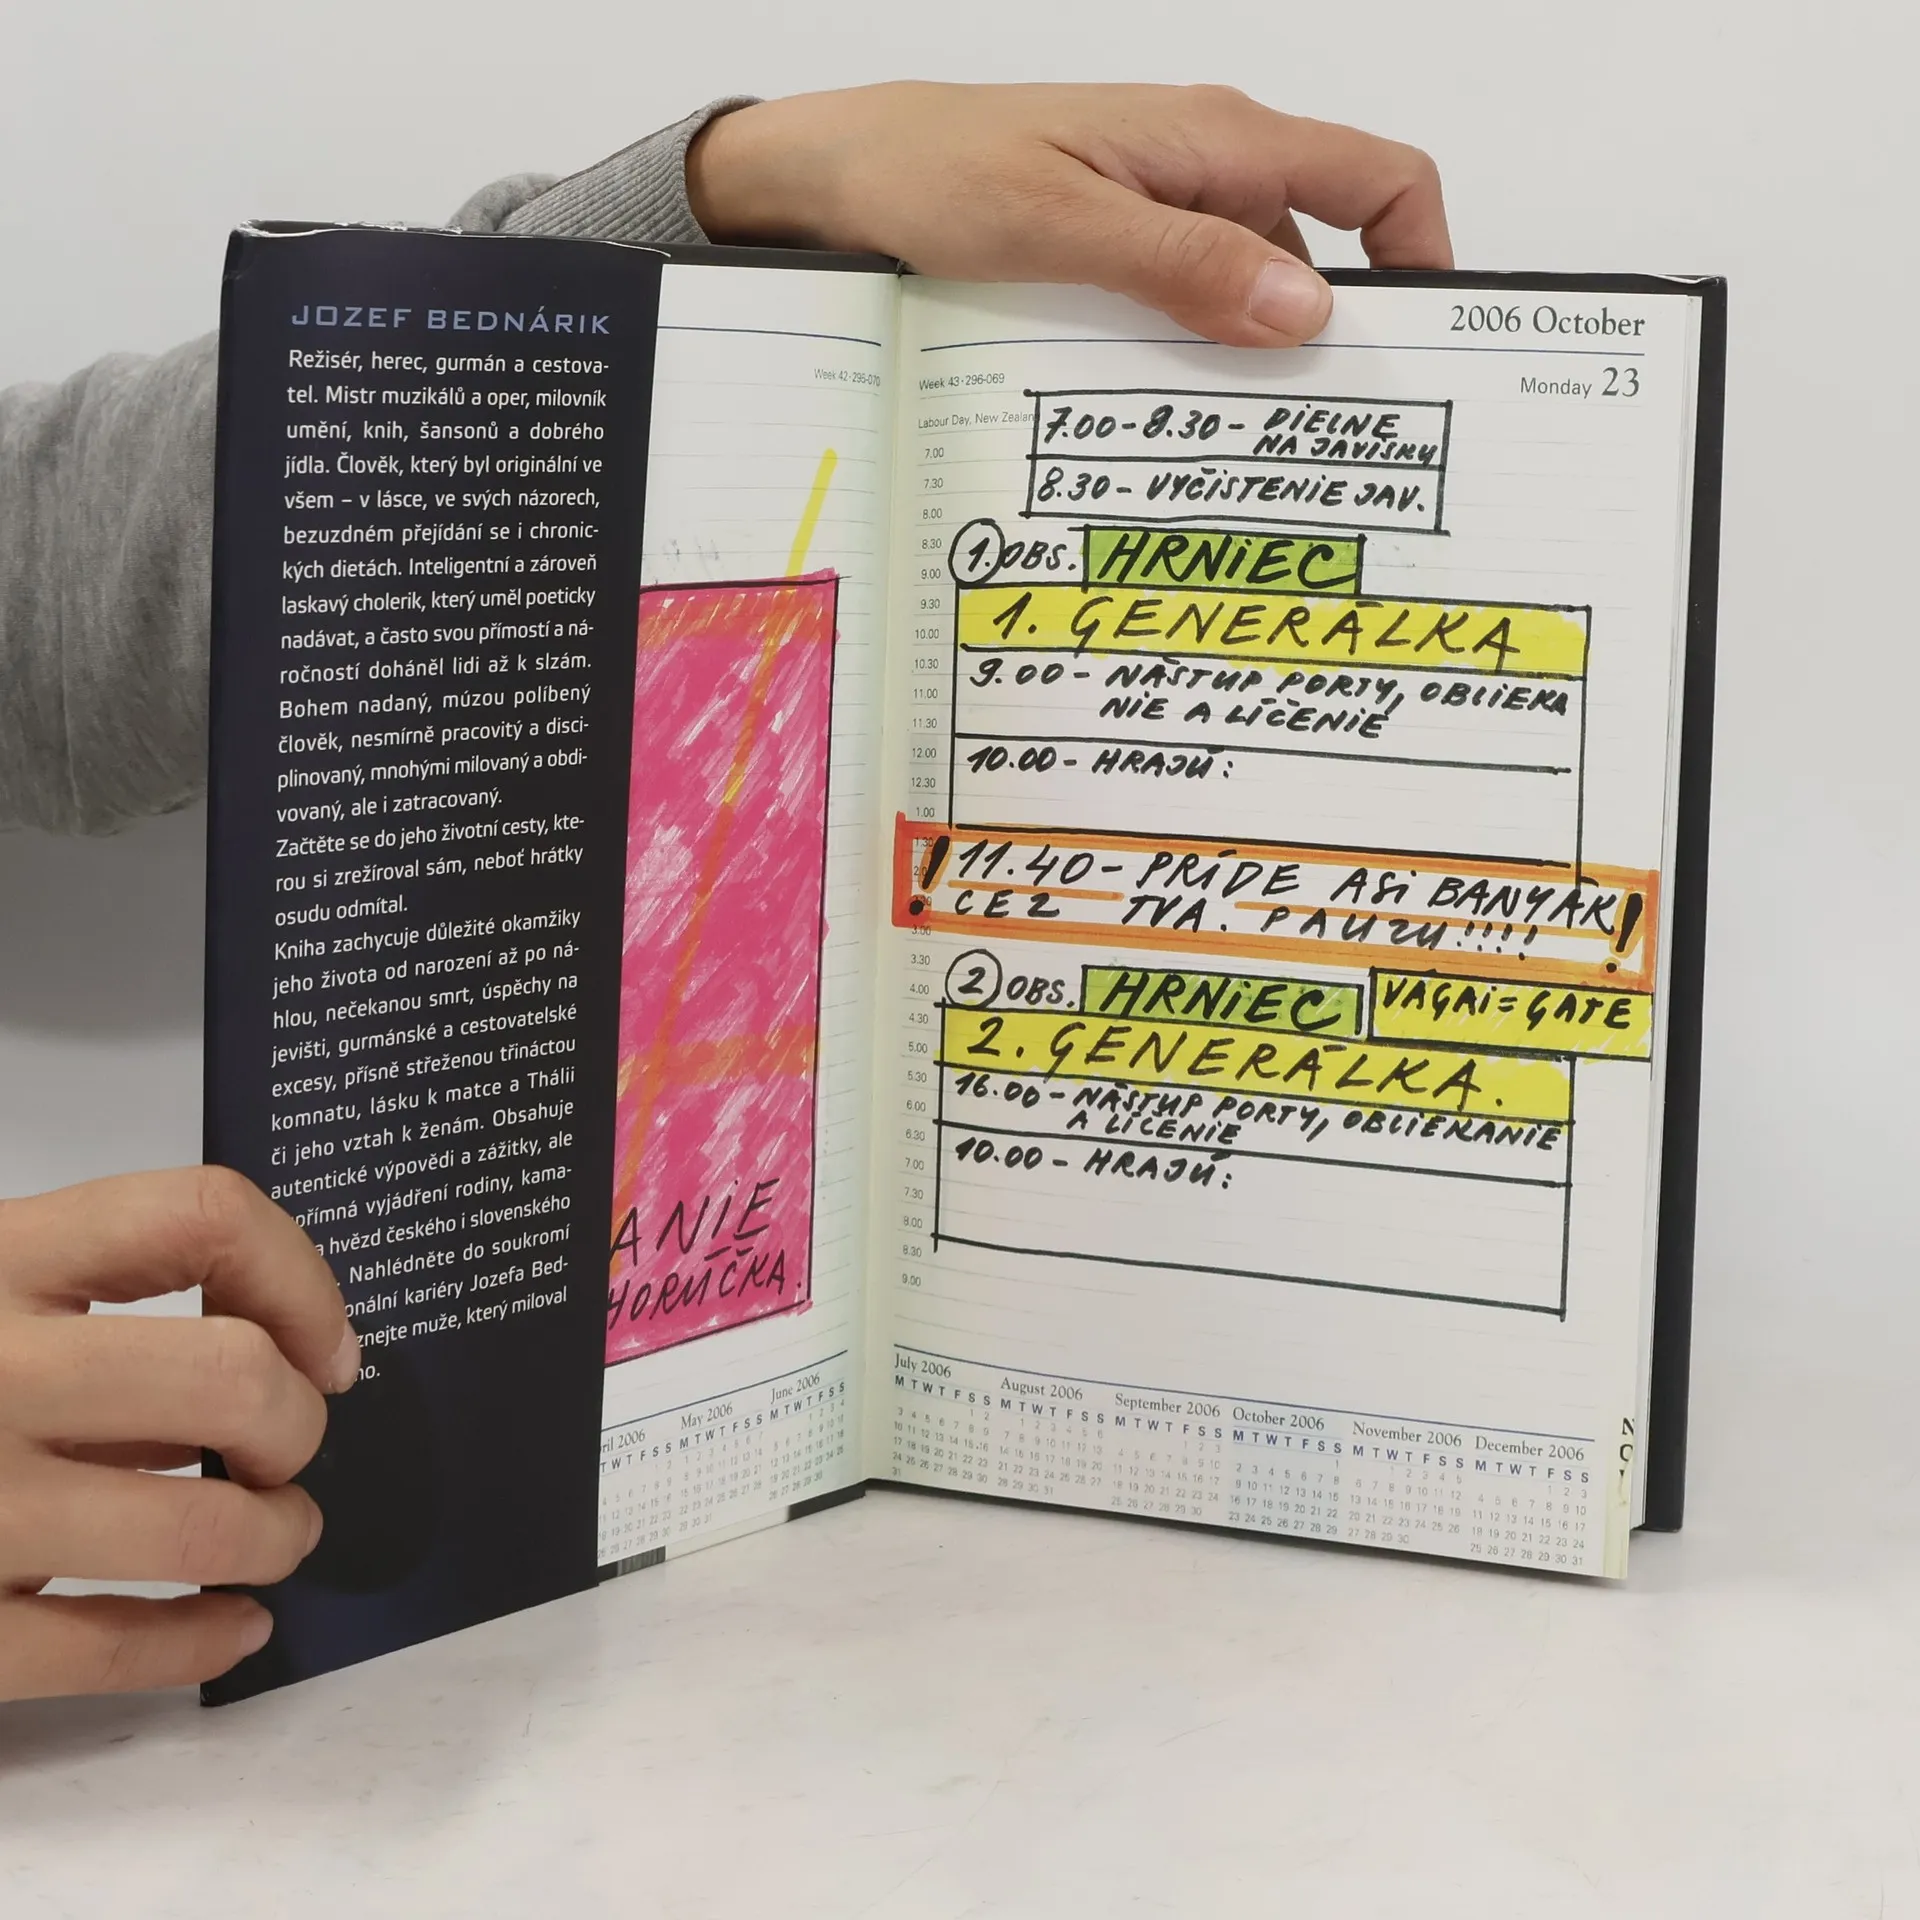 JOZEF BEDNÁRIK
Režisér, herec, gurmán a cestova-
tel. Mistr muzikálů a oper, milovník
umění, knih, šansonů a dobrého
jídla. Člověk, který byl originální ve
všem – v lásce, ve svých názorech,
bezuzdném přejídání se i chronic-
kých dietách. Inteligentní a zároveň
laskavý cholerik, který uměl poeticky
nadávat, a často svou přímostí a ná-
ročností doháněl lidi až k slzám.
Bohem nadaný, múzou políbený
člověk, nesmírně pracovitý a disci-
plinovaný, mnohými milovaný a obdi-
vovaný, ale i zatracovaný.
Začtěte se do jeho životní cesty, kte-
rou si zrežíroval sám, neboť hrátky
osudu odmítal.
Kniha zachycuje důležité okamžiky
jeho života od narození až po ná-
hlou, nečekanou smrt, úspěchy na
jevišti, gurmánské a cestovatelské
excesy, přísně střeženou třináctou
komnatu, lásku k matce a Thálii
či jeho vztah k ženám. Obsahuje
autentické výpovědi a zážitky, ale
přímná vyjádření rodiny, kama-
a hvězd českého i slovenského
. Nahlédněte do soukromí
onální kariéry Jozefa Bed-
znejte muže, který miloval
ho.
Week 42·296-070
ANIE
HORÚČKA.
ril 2006
May 2006
June 2006
2006 October
Week 43·296-069
Monday 23
Labour Day, New Zealan
7.00-8.30- DIELNE
NA JAVISKU
8.30- VYČISTENIE JAV.
1. OBS. HRNIEC
1. GENERÁLKA
9.00- NÁSTUP PORTY, OBLIEKA
NIE A LÍČENIE
10.00- HRAJÚ:
! 11.40- PRÍDE ASI BANYÁK!
CEZ TVA. PAUZU!!!!
2 OBS. HRNIEC VAGAI=GATE
2. GENERÁLKA.
16.00- NÁSTUP PORTY, OBLIEKANIE
A LÍCENIE
10.00- HRAJÚ:
7.00
7.30
8.00
8.30
9.00
9.30
10.00
10.30
11.00
11.30
12.00
12.30
1.00
1.30
3.00
3.30
4.00
4.30
5.00
5.30
6.00
6.30
7.00
7.30
8.00
8.30
9.00
July 2006
M T W T F S S
August 2006
M T W T F S S
September 2006
M T W T F S S
October 2006
M T W T F S S
November 2006
M T W T F S S
December 2006
M T W T F S S